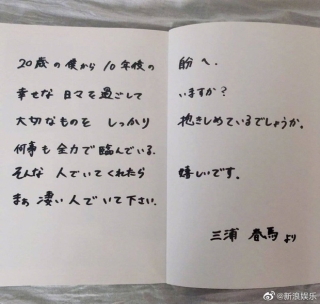 20歳の僕から10年後の自分へ.
幸せな日々を過ごしていますか?
大切なものをしっかり抱きしめているでしょうか.
何事も全力で臨んでいる.
そんな人でいてくれたら嬉しいです.
まぁ凄い人でいて下さい.
三浦春馬より
@新浪娱乐